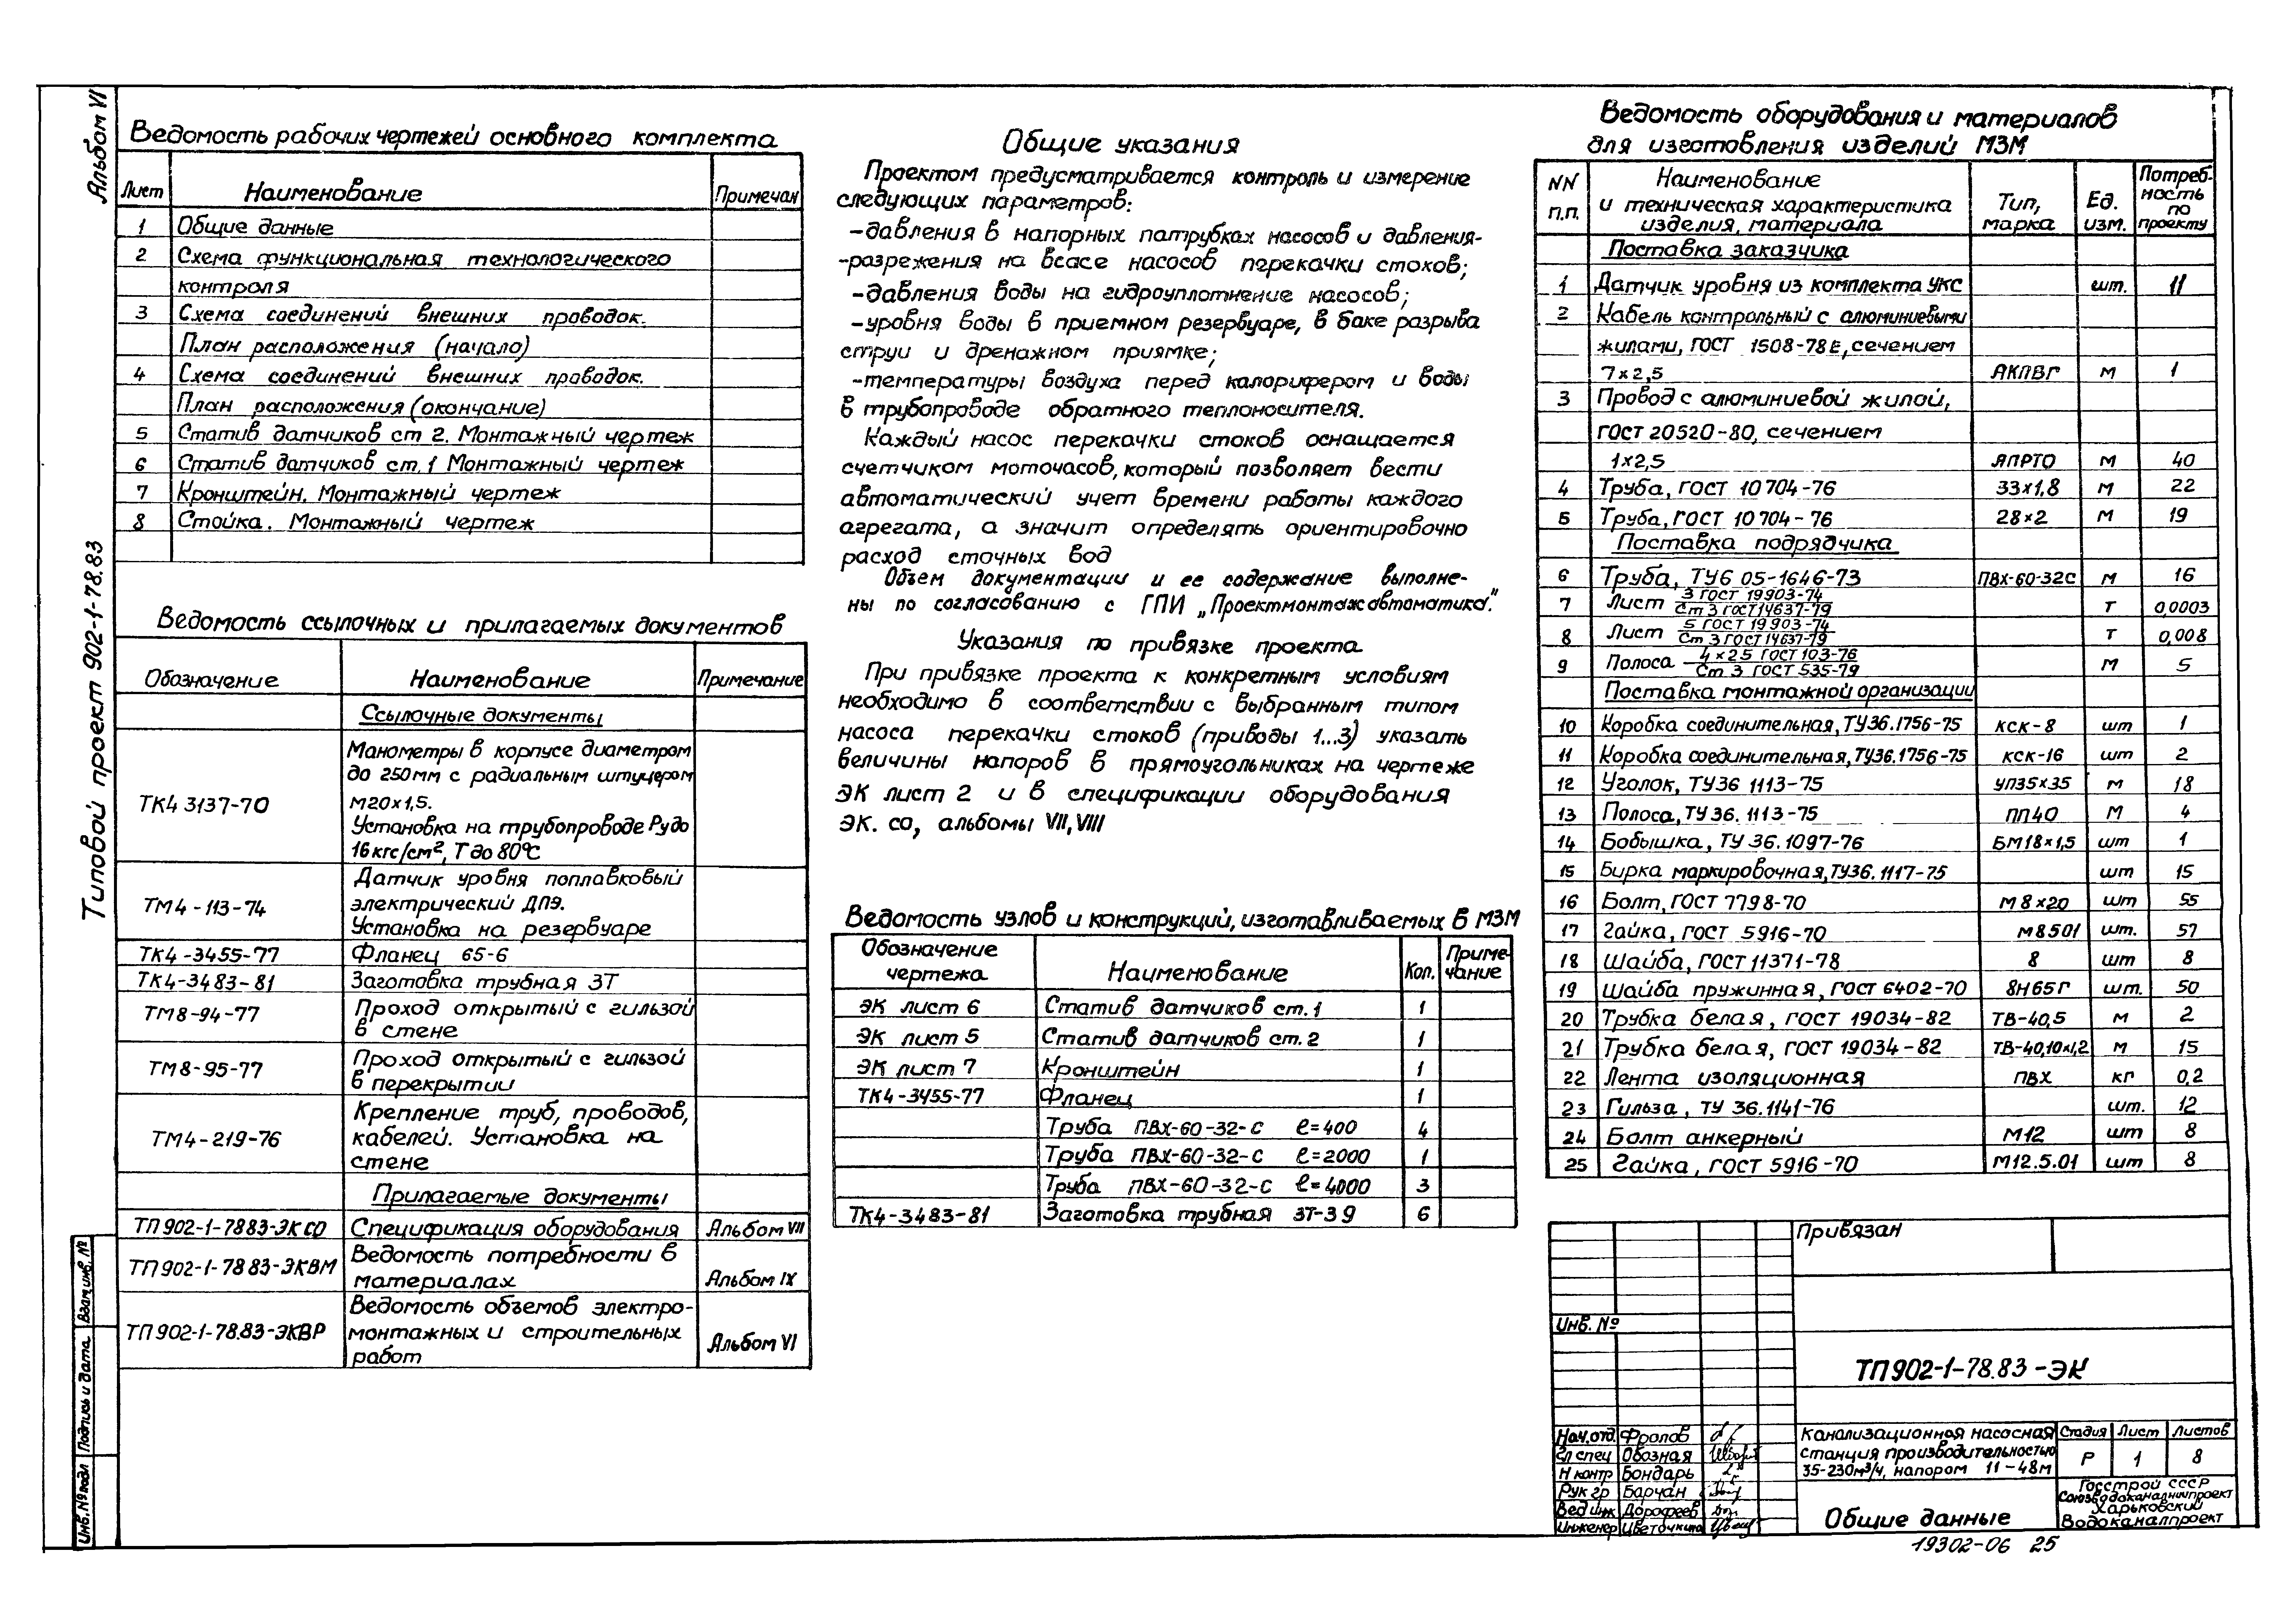 Альбом VI
Типовой проект 902-1-78.83
Ведомость рабочих чертежей основного комплекта
Лист Наименование Примечан
1 Общие данные
2 Схема функциональная технологического
контроля
3 Схема соединений внешних проводок.
План расположения (начало)
4 Схема соединений внешних проводок.
План расположения (окончание)
5 Статив датчиков ст 2. Монтажный чертеж
6 Статив датчиков ст. 1 Монтажный чертеж
7 Кронштейн. Монтажный чертеж
8 Стойка. Монтажный чертеж
Ведомость ссылочных и прилагаемых документов
Обозначение Наименование Примечание
Ссылочные документы
Манометры в корпусе диаметром
до 250мм с радиальным штуцером
ТК4 3137-70 М20х1,5.
Установка на трубопроводе Ру до
16 кгс/см², Т до 80°С
Датчик уровня поплавковый
ТМ4-113-74 электрический ДПЭ.
Установка на резервуаре
ТК4-3455-77 Фланец 65-6
ТК4-3483-81 Заготовка трубная ЗТ
ТМ8-94-77 Проход открытый с гильзой
в стене
ТМ8-95-77 Проход открытый с гильзой
в перекрытии
Крепление труб, проводов,
ТМ4-219-76 кабелей. Установка на
стене
Прилагаемые документы
ТП 902-1-7883-ЭК СО Спецификация оборудования Альбом VII
ТП 902-1-7883-ЭКВМ Ведомость потребности в
материалах Альбом IX
Ведомость объемов электро-
ТП 902-1-78.83-ЭКВР монтажных и строительных Альбом VI
работ
Общие указания
Проектом предусматривается контроль и измерение
следующих параметров:
-давления в напорных патрубках насосов и давления-
-разрежения на всасе насосов перекачки стоков;
-давления воды на гидроуплотнение насосов;
-уровня воды в приемном резервуаре, в баке разрыва
струи и дренажном приямке;
-температуры воздуха перед калорифером и воды
в трубопроводе обратного теплоносителя.
Каждый насос перекачки стоков оснащается
счетчиком моточасов, который позволяет вести
автоматический учет времени работы каждого
агрегата, а значит определять ориентировочно
расход сточных вод
Объем документации и ее содержание выполне-
ны по согласованию с ГПИ „Проектмонтажавтоматика."
Указания по привязке проекта
При привязке проекта к конкретным условиям
необходимо в соответствии с выбранным типом
насоса перекачки стоков (приводы 1...3) указать
величины напоров в прямоугольниках на чертеже
ЭК лист 2 и в спецификации оборудования
ЭК. СО, альбомы VII, VIII
Ведомость узлов и конструкций, изготавливаемых в МЗМ
Обозначение чертежа Наименование Кол. Приме-чание
ЭК лист 6 Статив датчиков ст. 1 1
ЭК лист 5 Статив датчиков ст. 2 1
ЭК лист 7 Кронштейн 1
ТК4-3455-77 Фланец 1
Труба ПВХ-60-32-С ℓ=400 4
Труба ПВХ-60-32-С ℓ=2000 1
Труба ПВХ-60-32-С ℓ=4000 3
ТК4-3483-81 Заготовка трубная ЗТ-39 6
Ведомость оборудования и материалов
для изготовления изделий МЗМ
NN п.п. Наименование и техническая характеристика изделия, материала Тип, марка Ед. изм. Потреб-ность по проекту
Поставка заказчика
1 Датчик уровня из комплекта УКС шт. 11
2 Кабель контрольный с алюминиевыми
жилами, ГОСТ 1508-78Е, сечением
7х2,5 АКПВГ м 1
3 Провод с алюминиевой жилой,
ГОСТ 20520-80, сечением
1х2,5 АПРТО м 40
4 Труба, ГОСТ 10704-76 33х1,8 м 22
5 Труба, ГОСТ 10704-76 28х2 м 19
Поставка подрядчика
6 Труба, ТУ6 05-1646-73 ПВХ-60-32С м 16
7 Лист 3 ГОСТ 19903-74 / Ст 3 ГОСТ 14637-79 т 0,0003
8 Лист 5 ГОСТ 19903-74 / Ст 3 ГОСТ 14637-79 т 0,008
9 Полоса 4х25 ГОСТ 103-76 / Ст 3 ГОСТ 535-79 м 5
Поставка монтажной организации
10 Коробка соединительная, ТУ36.1756-75 КСК-8 шт 1
11 Коробка соединительная, ТУ36.1756-75 КСК-16 шт 2
12 Уголок, ТУ36 1113-75 УП35х35 м 18
13 Полоса, ТУ 36. 1113-75 ПП40 м 4
14 Бобышка, ТУ 36.1097-76 БМ18х1,5 шт 1
15 Бирка маркировочная, ТУ36. 1117-75 шт 15
16 Болт, ГОСТ 7798-70 М8х20 шт 55
17 Гайка, ГОСТ 5916-70 М8501 шт. 57
18 Шайба, ГОСТ 11371-78 8 шт 8
19 Шайба пружинная, ГОСТ 6402-70 8Н65Г шт. 50
20 Трубка белая, ГОСТ 19034-82 ТВ-40,5 м 2
21 Трубка белая, ГОСТ 19034-82 ТВ-40,10х1,2 м 15
22 Лента изоляционная ПВХ кг 0,2
23 Гильза, ТУ 36.1141-76 шт. 12
24 Болт анкерный М12 шт 8
25 Гайка, ГОСТ 5916-70 М12.5.01 шт 8
Привязан
Инв. №
ТП 902-1-78.83-ЭК
Нач.отд. Фролов
Гл спец Обозная
Н контр Бондарь
Рук гр Барчан
Вед инж Дорофеев
Инженер Цветочкина
Канализационная насосная
станция производительностью
35-230м³/ч, напором 11-48м
Стадия Лист Листов
Р 1 8
Общие данные
Госстрой СССР
Союзводоканалниипроект
Харьковский
Водоканалпроект
19302-06 25
Инв. № подл Подпись и дата Взам. инв. №